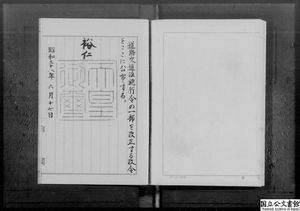 道路交通法施行令の一部を改正する政令
をここに公布する。
裕仁
天皇
御璽
昭和五十八年六月十七日
国立公文書館
National Archives of Japan